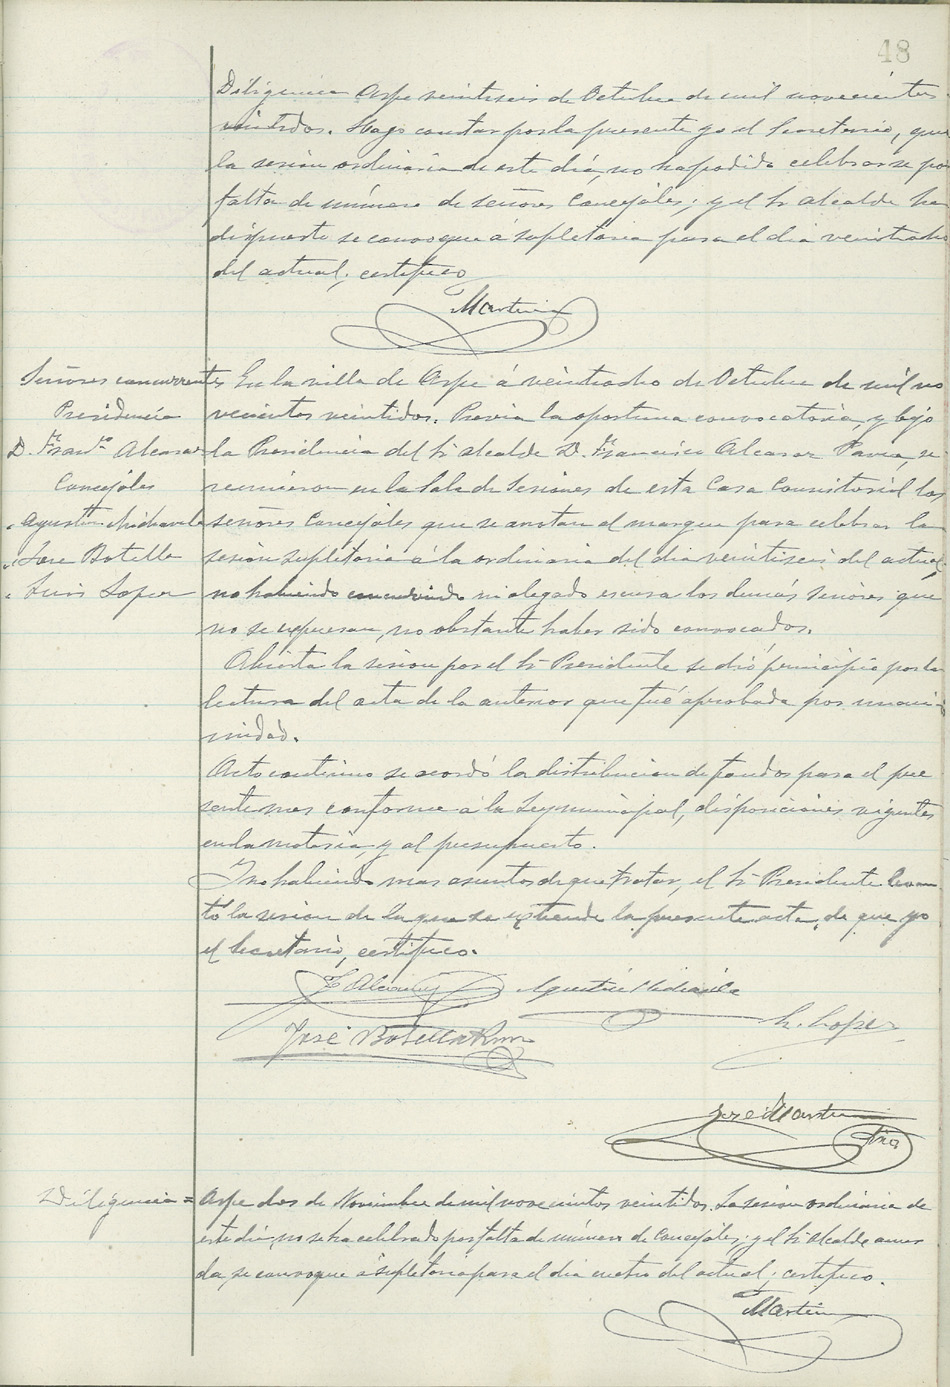 48
Diligencia Aspe veintiseis de Octubre de mil novecientos
veintidos. Hago constar por la presente yo el Secretario, que
la sesión ordinaria de este día, no ha podido celebrarse po
falta de número de señores Concejales; y el Sr Alcalde ha
dispuesto se convoque á supletoria para el dia veintiocho
del actual, certifico
Martin
Señores concurrentes
Presidencia
D. Franco Alcaraz
Concejales
" Agustín Mira
" Jose Botella
" Luis Lopez
En la villa de Aspe á veintiocho de Octubre de mil no
vecientos veintidos. Previa la oportuna convocatoria, y bajo
la Presidencia del Sr Alcalde D. Francisco Alcaraz Pavia, se
reunieron en la Sala de Sesiones de esta Casa Consistorial los
señores Concejales que se anotan al margen para celebrar la
sesión supletoria á la ordinaria del dia veintiseis del actual,
no habiendo concurrido ni alegado escusa los demás señores que
no se expresan, no obstante haber sido convocados.
Abierta la sesion por el Sr Presidente se dió principio por la
lectura del acta de la anterior que fué aprobada por unani-
midad.
Acto continuo se acordó la distribucion de fondos para el pre
sente mes conforme á la Ley municipal, disposiciones vigentes
en la materia, y al presupuesto.
Y no habiendo mas asuntos de que tratar, el Sr Presidente levan
tó la sesion de la que se extiende la presente acta, de que yo
el Secretario, certifico.
F Alcaraz Agustín
José Botella L. Lopez
José Martin
Diligencia = Aspe dos de Noviembre de mil novecientos veintidos. La sesion ordinaria de
este dia, no se ha celebrado por falta de número de Concejales; y el Sr Alcalde acuer
da, se convoque á supletoria para el dia cuatro del actual; certifico.
Martin